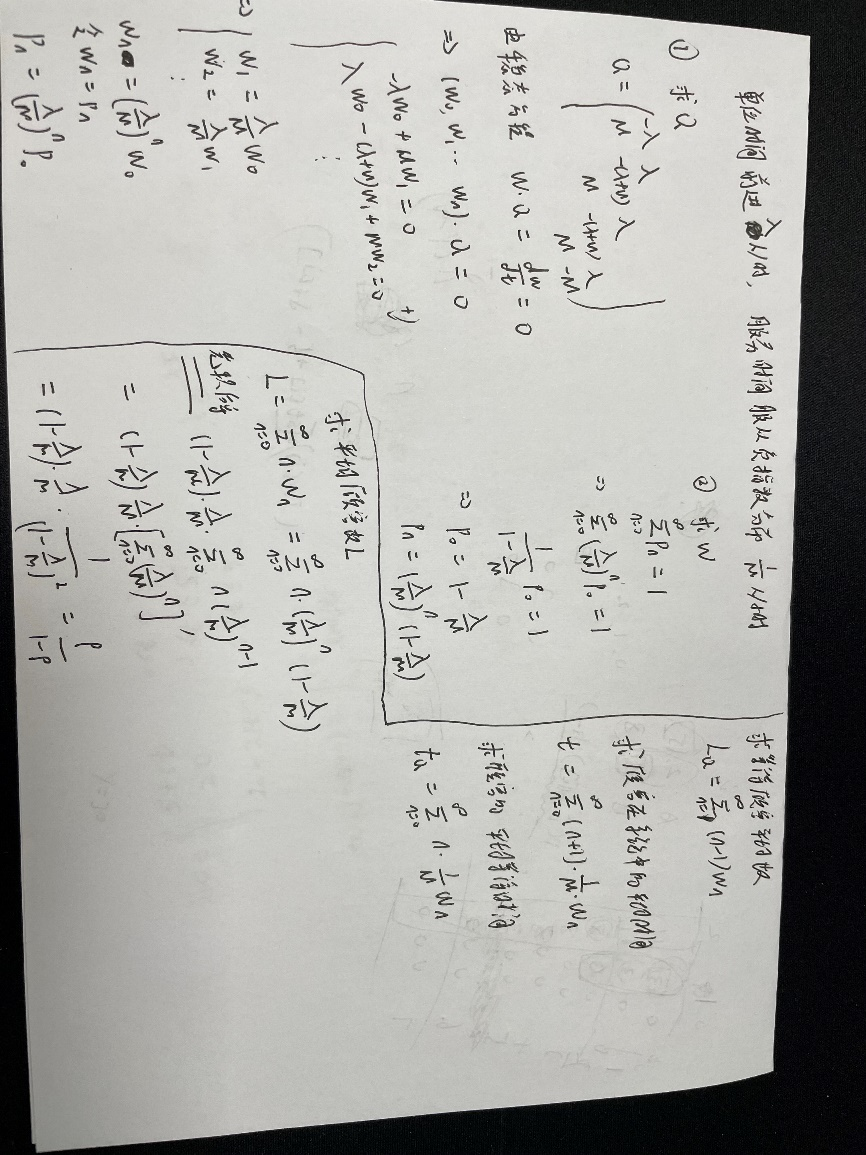 单位时间前进λ人/时, 服务时间服从负指数分布 1/μ 人/时
① 求Q
Q = ( -λ λ
μ -(λ+μ) λ
μ -(λ+μ) λ
μ -μ )
由稳态方程 W·Q = dw/dt = 0
⇒ (W₀, W₁ ⋯ Wₙ)·Q = 0
-λW₀ + μW₁ = 0
λW₀ - (λ+μ)W₁ + μW₂ = 0
⋮
⇒ { W₁ = λ/μ W₀
W₂ = λ/μ W₁
⋮
Wₙ = (λ/μ)ⁿ W₀
令 Wₙ = Pₙ
Pₙ = (λ/μ)ⁿ P₀
② 求W
∑_{n=0}^{∞} Pₙ = 1
⇒ ∑_{n=0}^{∞} (λ/μ)ⁿ P₀ = 1
1/(1-λ/μ) P₀ = 1
⇒ P₀ = 1 - λ/μ
Pₙ = (λ/μ)ⁿ (1-λ/μ)
求平均顾客数L
L = ∑_{n=0}^{∞} n·Wₙ = ∑_{n=0}^{∞} n·(λ/μ)ⁿ (1-λ/μ)
(1-λ/μ)·λ/μ·∑_{n=0}^{∞} n(λ/μ)ⁿ⁻¹
= (1-λ/μ) λ/μ·[∑_{n=0}^{∞} (λ/μ)ⁿ]'
= (1-λ/μ)·λ/μ·1/(1-λ/μ)² = ρ/(1-ρ)
求等待顾客平均数
LQ = ∑^{∞} (n-1)Wₙ
求顾客在系统中的平均时间
t = ∑_{n=0}^{∞} (n+1)·1/μ·Wₙ
求顾客的平均等待时间
tQ = ∑_{n=0}^{∞} n·1/μ Wₙ